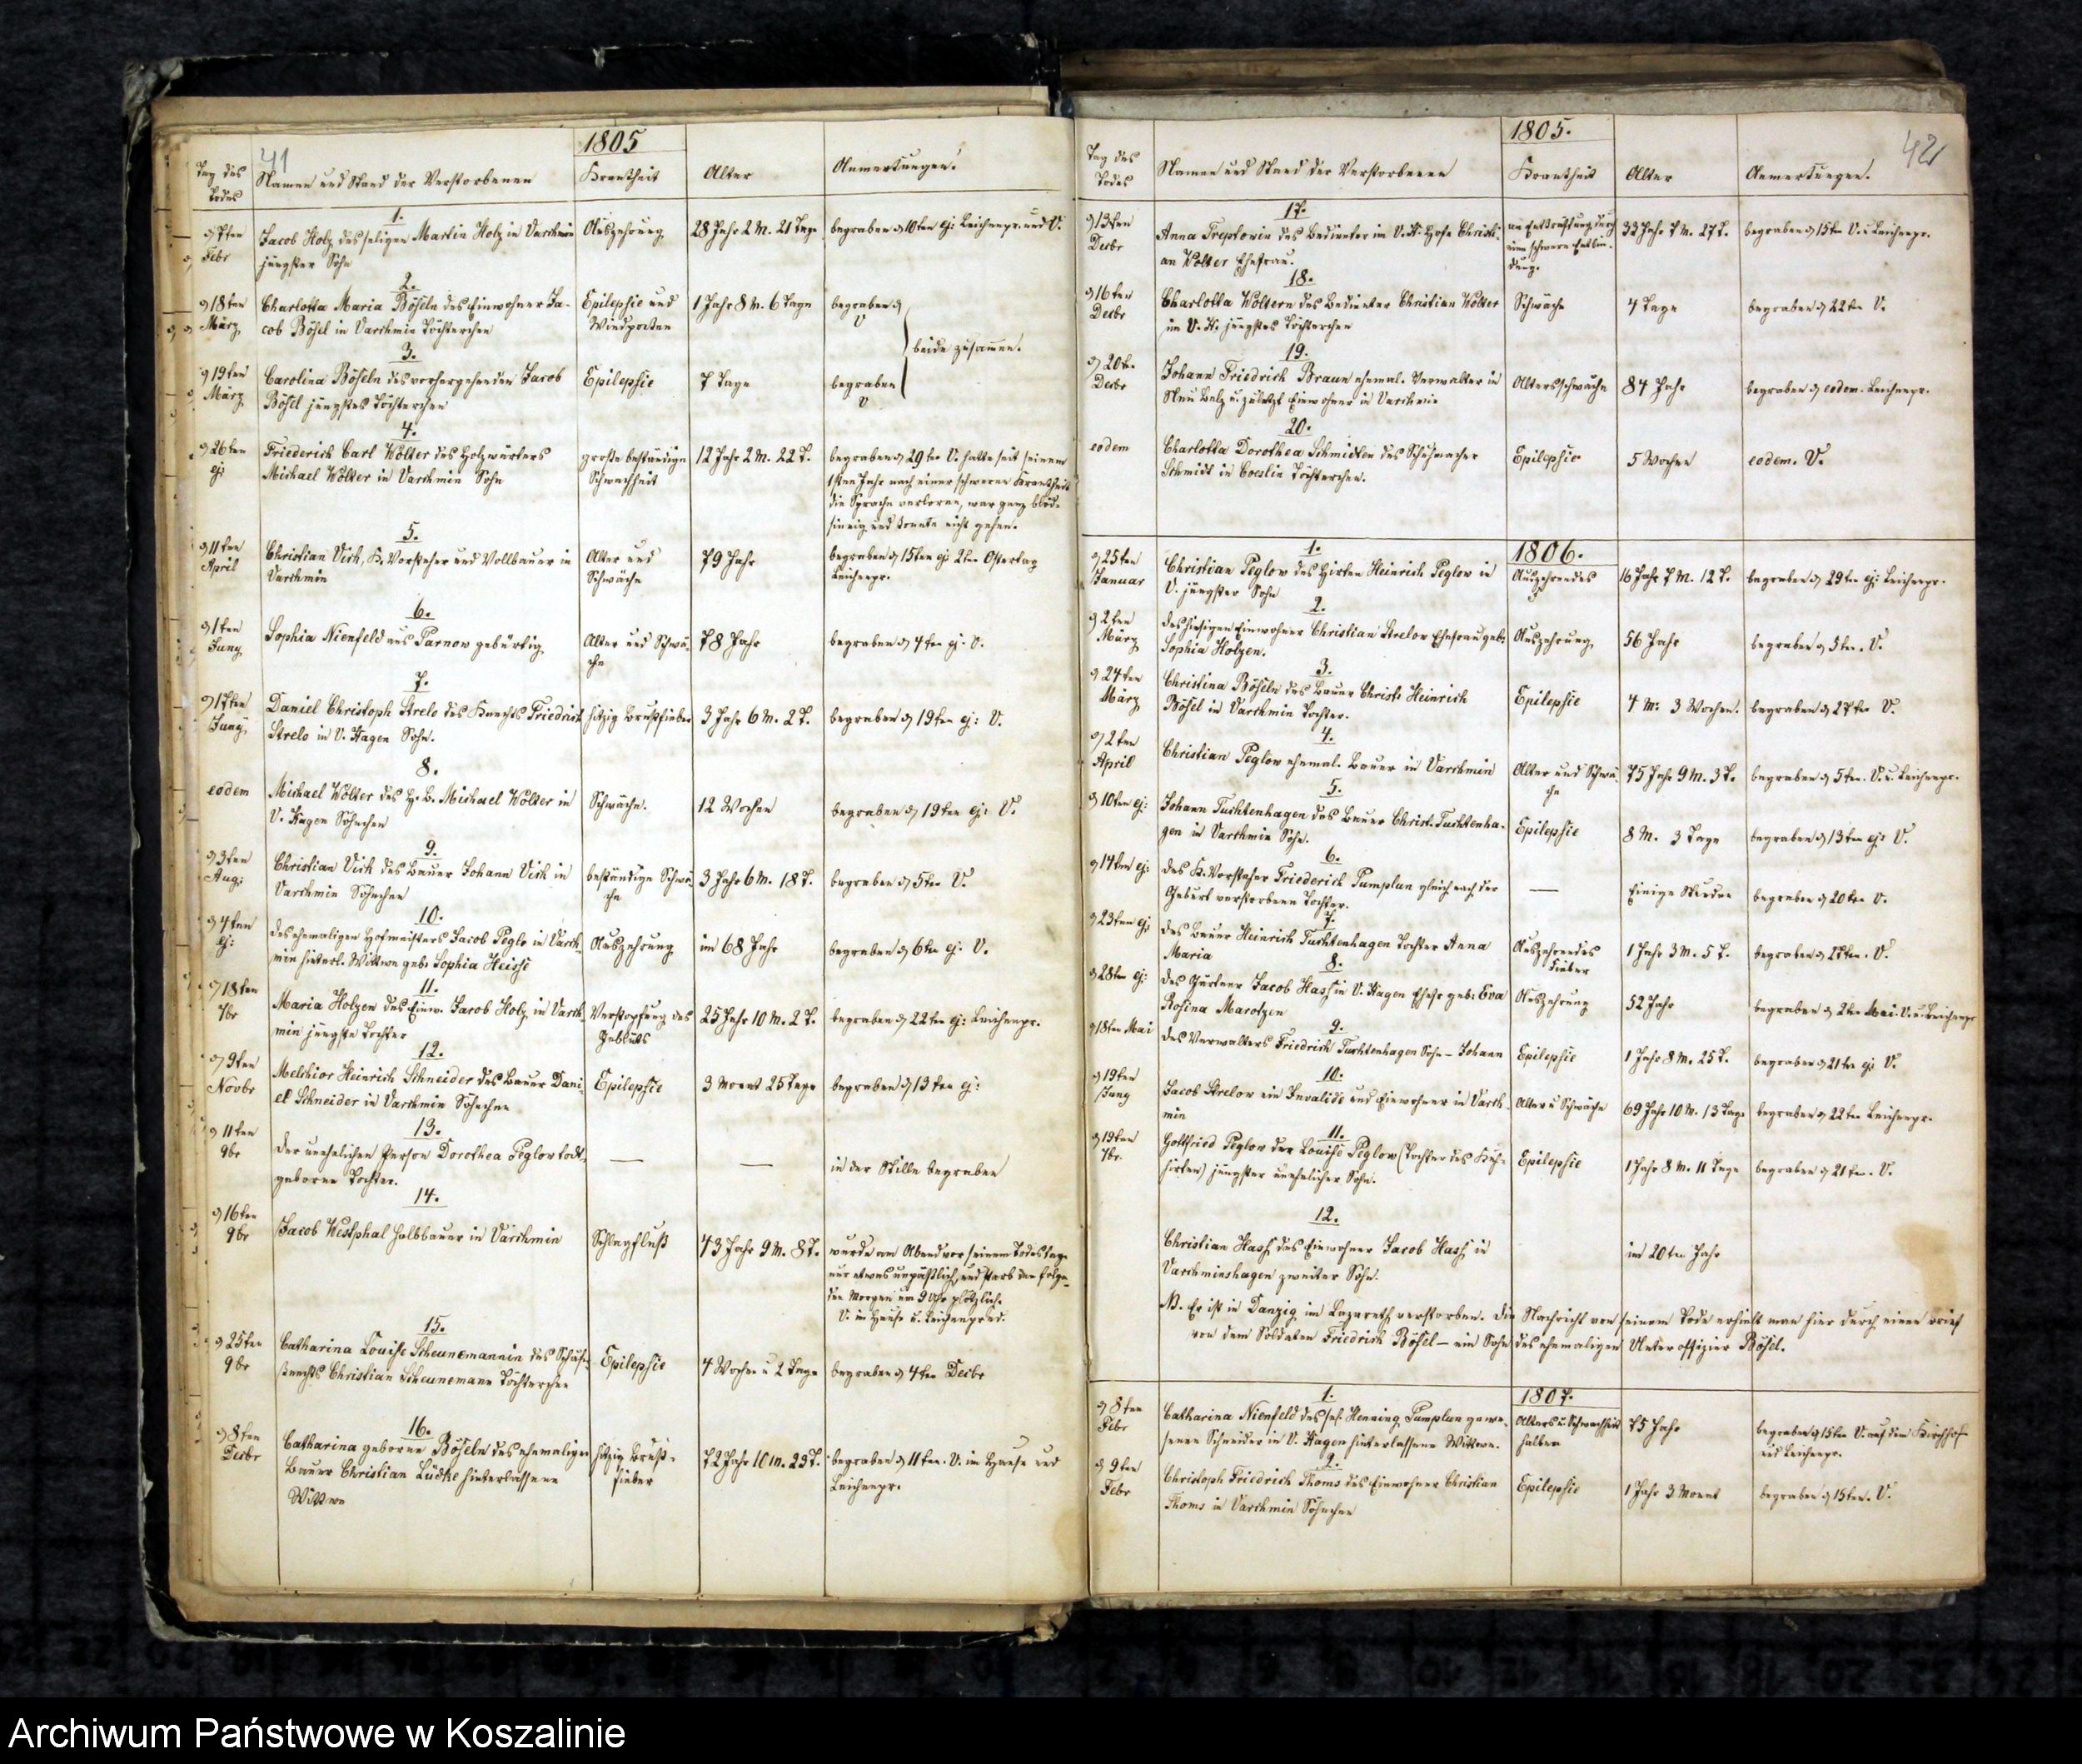 41
1805
Tag des
Todes
Namen und Stand der Verstorbenen
Krankheit
Alter
Anmerkungen.
1.
d 7ten
Febr
Jacob Holz des seligen Martin Holz in Varchmin
jüngster Sohn
Auszehrung
28 Jahr 2 M. 21 Tage
begraben d 10ten ej: Leichenpr. und V.
2.
d 18ten
März
Charlotta Maria Böseln des Einwohner Ja-
cob Bösel in Varchmin Töchterchen
Epilepsie und
Windpocken
1 Jahr 8 M. 6 Tage
begraben d
V
beide zusamen.
3.
d 19ten
März
Carolina Böseln des vorhergehenden Jacob
Bösel jüngstes Töchterchen
Epilepsie
7 Tage
begraben
V
4.
d 26ten
ej:
Friederich Carl Wolter des Holzwärters
Michael Wolter in Varchmin Sohn
große beständige
Schwachheit
12 Jahr 2 M. 22 T.
begraben d 29ten V. hatte seit seinem
1sten Jahr nach einer schweren Krankheit
die Sprache verloren, war ganz blöd-
sinnig und konnte nicht gehen.
5.
d 11ten
April
Christian Vick, K. Vorsteher und Vollbauer in
Varchmin
Alter und
Schwäche
79 Jahr
begraben d 15ten ej 2ten Ostertag
Leichenpr.
6.
d 1ten
Juny
Sophia Nienfeld aus Parnow gebürtig
Alter und Schwä-
che
78 Jahr
begraben d 4ten ej: V.
7.
d 17ten
Juny
Daniel Christoph Strelo des Knechts Friedrich
Strelo in V. Hagen Sohn.
hitzig Brustfieber
3 Jahr 6 M. 2 T.
begraben d 19ten ej: V.
8.
eodem
Michael Wolter des H. B. Michael Wolter in
V. Hagen Söhnchen
Schwäche.
12 Wochen
begraben d 19ten ej: V.
9.
d 3ten
Aug:
Christian Vick des Bauer Johann Vick in
Varchmin Söhnchen
beständige Schwä-
che
3 Jahr 6 M. 18 T.
begraben d 5ten V.
10.
d 4ten
ej:
des ehemaligen Hofmeisters Jacob Peglo in Varch-
min hinterl. Wittwe geb: Sophia Heisse
Auszehrung
im 68 Jahr
begraben d 6ten ej: V.
11.
d 18ten
7br
Maria Holzen des Einw. Jacob Holz in Varch-
min jüngste Tochter
Verstopfung des
Geblüts
25 Jahr 10 M. 2 T.
begraben d 22ten ej: Leichenpr.
12.
d 9ten
Novbr
Melchior Heinrich Schneider des Bauer Dani-
el Schneider in Varchmin Söhnchen
Epilepsie
3 Monat 25 Tage
begraben d 13ten ej:
13.
d 11ten
9br
Der unehelichen Person Dorothea Peglow todt-
geborne Tochter.
—
—
in der Stille begraben
14.
d 16ten
9br
Jacob Westphal Halbbauer in Varchmin
Schlagfluß
43 Jahr 9 M. 8 T.
wurde am Abend vor seinem Todestage
nur etwas unpäßlich, und starb den folgen-
den Morgen um 9 Uhr plötzlich.
V. im Hause u. Leichenpred.
15.
d 25ten
9br
Catharina Louise Scheunemannin des Schäfer-
knechts Christian Scheunemann Töchterchen
Epilepsie
4 Wochen u 2 Tage
begraben d 4ten Decbr
16.
d 8ten
Decbr
Catharina geborne Böseln des ehemaligen
Bauer Christian Lüdtke hinterlassene
Wittwe
hitzig Brust-
fieber
72 Jahr 10 M. 23 T.
begraben d 11ten. V. im Hause und
Leichenpr.
42
1805.
Tag des
Todes
Namen und Stand der Verstorbenen
Krankheit
Alter
Anmerkungen.
17.
d 13ten
Decbr
Anna Treptowin des Bedienter im V. H. Hofe Christi-
an Wolter Ehefrau.
an Entkräftung durch
eine schwere Entbin-
dung.
33 Jahr 7 M. 27 T.
begraben d 15ten V. u Leichenpr.
18.
d 16ten
Decbr
Charlotta Woltern des Bedienter Christian Wolter
im V. H. jüngstes Töchterchen
Schwäche
4 Tage
begraben d 22ten V.
19.
d 20ten
Decbr
Johann Friedrich Braun ehemal. Verwalter in
Neu Belz u. zuletzt Einwohner in Varchmin
Altersschwäche
84 Jahr
begraben d eodem. Leichenpr.
20.
eodem
Charlotta Dorothea Schmidten des Schuhmacher
Schmidt in Coeslin Töchterchen.
Epilepsie
5 Wochen
eodem. V.
1806.
1.
d 25ten
Januar
Christian Peglow des Hirten Heinrich Peglow in
V. jüngster Sohn
Auszehrendes
16 Jahr 7 M. 12 T.
begraben d 29ten ej: Leichenpr.
2.
d 2ten
März
des hiesigen Einwohner Christian Strelow Ehefrau geb:
Sophia Holzen.
Auszehrung
56 Jahr
begraben d 5ten. V.
3.
d 24ten
März
Christina Böseln des Bauer Christ: Heinrich
Bösel in Varchmin Tochter.
Epilepsie
4 M: 3 Wochen.
begraben d 27ten V.
4.
d 2ten
April
Christian Peglow ehemal. Bauer in Varchmin
Alter und Schwä-
che
75 Jahr 9 M. 3 T.
begraben d 5ten. V. u Leichenpr.
5.
d 10ten ej:
Johann Tuchtenhagen des Bauer Christ. Tuchtenha-
gen in Varchmin Sohn.
Epilepsie
8 M. 3 Tage
begraben d 13ten ej: V.
6.
d 14ten ej:
des K. Vorsteher Friederich Pumplun gleich nach der
Geburt verstorbene Tochter.
—
Einige Stunden
begraben d 20ten V.
7.
d 23ten ej:
des Bauer Heinrich Tuchtenhagen Tochter Anna
Maria
Auszehrendes
Fieber
1 Jahr 3 M. 5 T.
begraben d 27ten. V.
8.
d 28ten ej:
des Gärtner Jacob Hass in V. Hagen Ehefr geb: Eva
Rosina Marotzen
Auszehrung
52 Jahr
begraben d 2ten Mai. V. u Leichenpr
9.
d 18ten Mai
des Verwalters Friedrich Tuchtenhagen Sohn – Johann
Epilepsie
1 Jahr 8 M. 25 T.
begraben d 21ten ej V.
10.
d 19ten
Juny
Jacob Strelow ein Invalide und Einwohner in Varch-
min
Alter u Schwäche
69 Jahr 10 M. 13 Tage
begraben d 22ten Leichenpr.
11.
d 19ten
7br.
Gottfried Peglow der Louise Peglow (Tochter des Kuh-
hirten) jüngster unehelicher Sohn.
Epilepsie
1 Jahr 8 M. 11 Tage
begraben d 21ten. V.
12.
Christian Hass des Einwohner Jacob Hass in
Varchminshagen zweiter Sohn.
im 20ten Jahr
N. Er ist in Danzig im Lazareth verstorben. Die Nachricht von seinem Tode erhielt man hier durch einen Brief
von dem Soldaten Friedrich Bösel – ein Sohn des ehemaligen Unterofficier Bösel.
1807.
1.
d 8ten
Febr
Catharina Nienfeld des sel. Henning Pumplun gewe-
senen Schneider in V. Hagen hinterlassene Wittwe.
Alters u. Schwachheit
halber
75 Jahr
begraben d 15ten V. auf dem Kirchhof
und Leichenpr.
2.
d 9ten
Febr
Christoph Friedrich Thoms des Einwohner Christian
Thoms in Varchmin Söhnchen
Epilepsie
1 Jahr 3 Monat
begraben d 15ten. V.
Archiwum Państwowe w Koszalinie